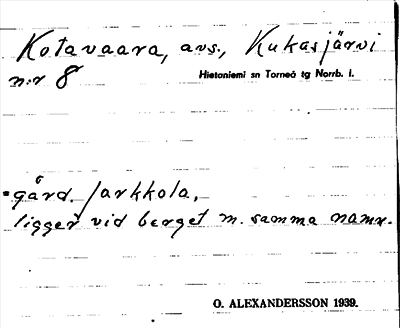 Kotavaara, avs., Kukasjärvi
n:r 8
Hietaniemi sn Torneå tg Norrb. l.
gård. Jarkkola,
ligger vid berget m. samma namn.
O. ALEXANDERSSON 1939.